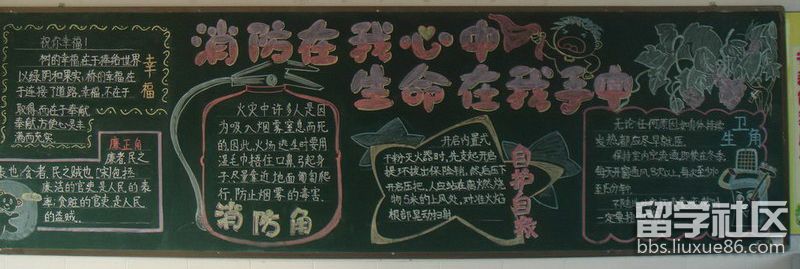 祝你幸福!
树的幸福在于捧给世界
以绿阴和果实,桥的幸福在
于连接了道路,幸福,不在于
取得,而在于奉献
奉献,方使心灵丰
满而充实
幸福
廉正角
廉者,民之
表也;贪者,民之贼也[宋]包拯
廉洁的官吏是人民的表
率;贪脏的官吏是人民
的盗贼。
消防在我心中
生命在我手中
火灾中许多人是因
为吸入烟雾窒息而死
的,因此,火场逃生时要用
湿毛巾捂住口鼻,弓起身
子尽量靠近地面匍匐爬
行,防止烟雾的毒害.
消防角
开启内置式
干粉灭火器时,先变处开启
提环拔出保险销,然后压下
开启压把,人应站在离燃烧
物5米的上风处,对准火焰
根部晃动扫射
自护自救
卫生角
无论任何原因
发热都应尽早就医。
保持室内空气流通,即使在冬季,
留学社区
bbs.liuxue86.com